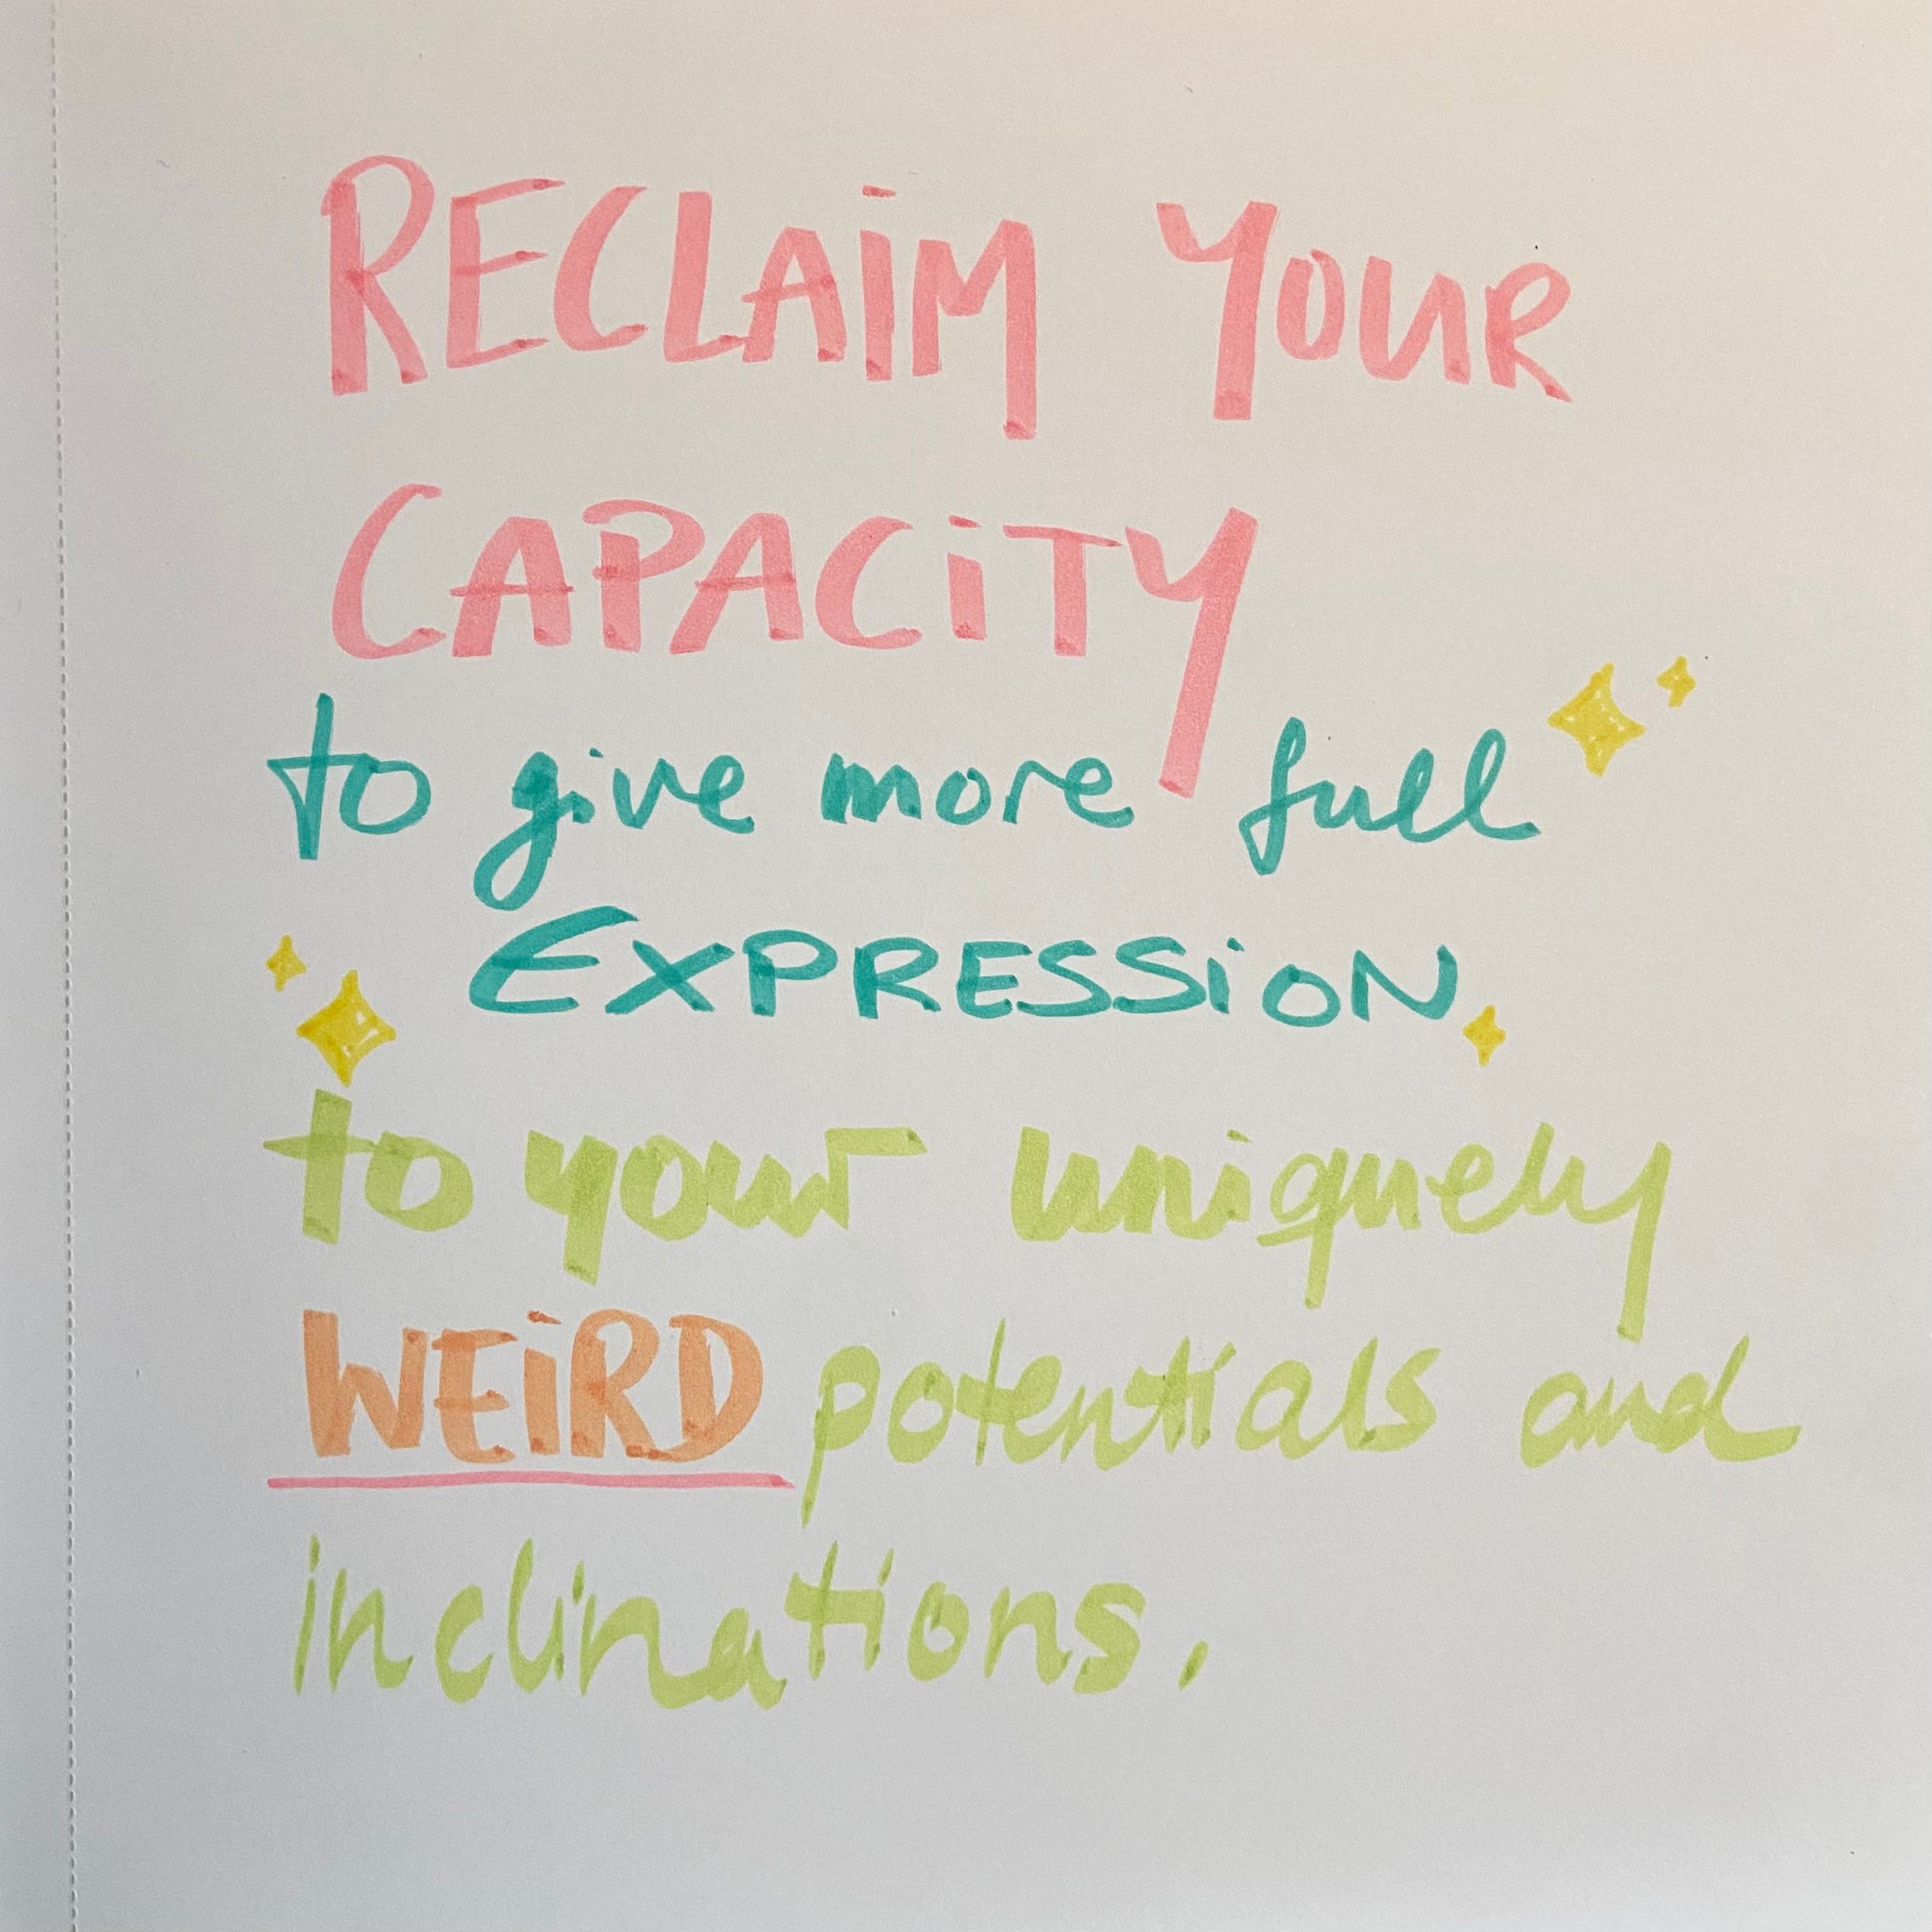 RECLAiM YOUR
CAPACiTY
to give more full
EXPRESSiON
to your uniquely
WEiRD potentials and
inclinations.